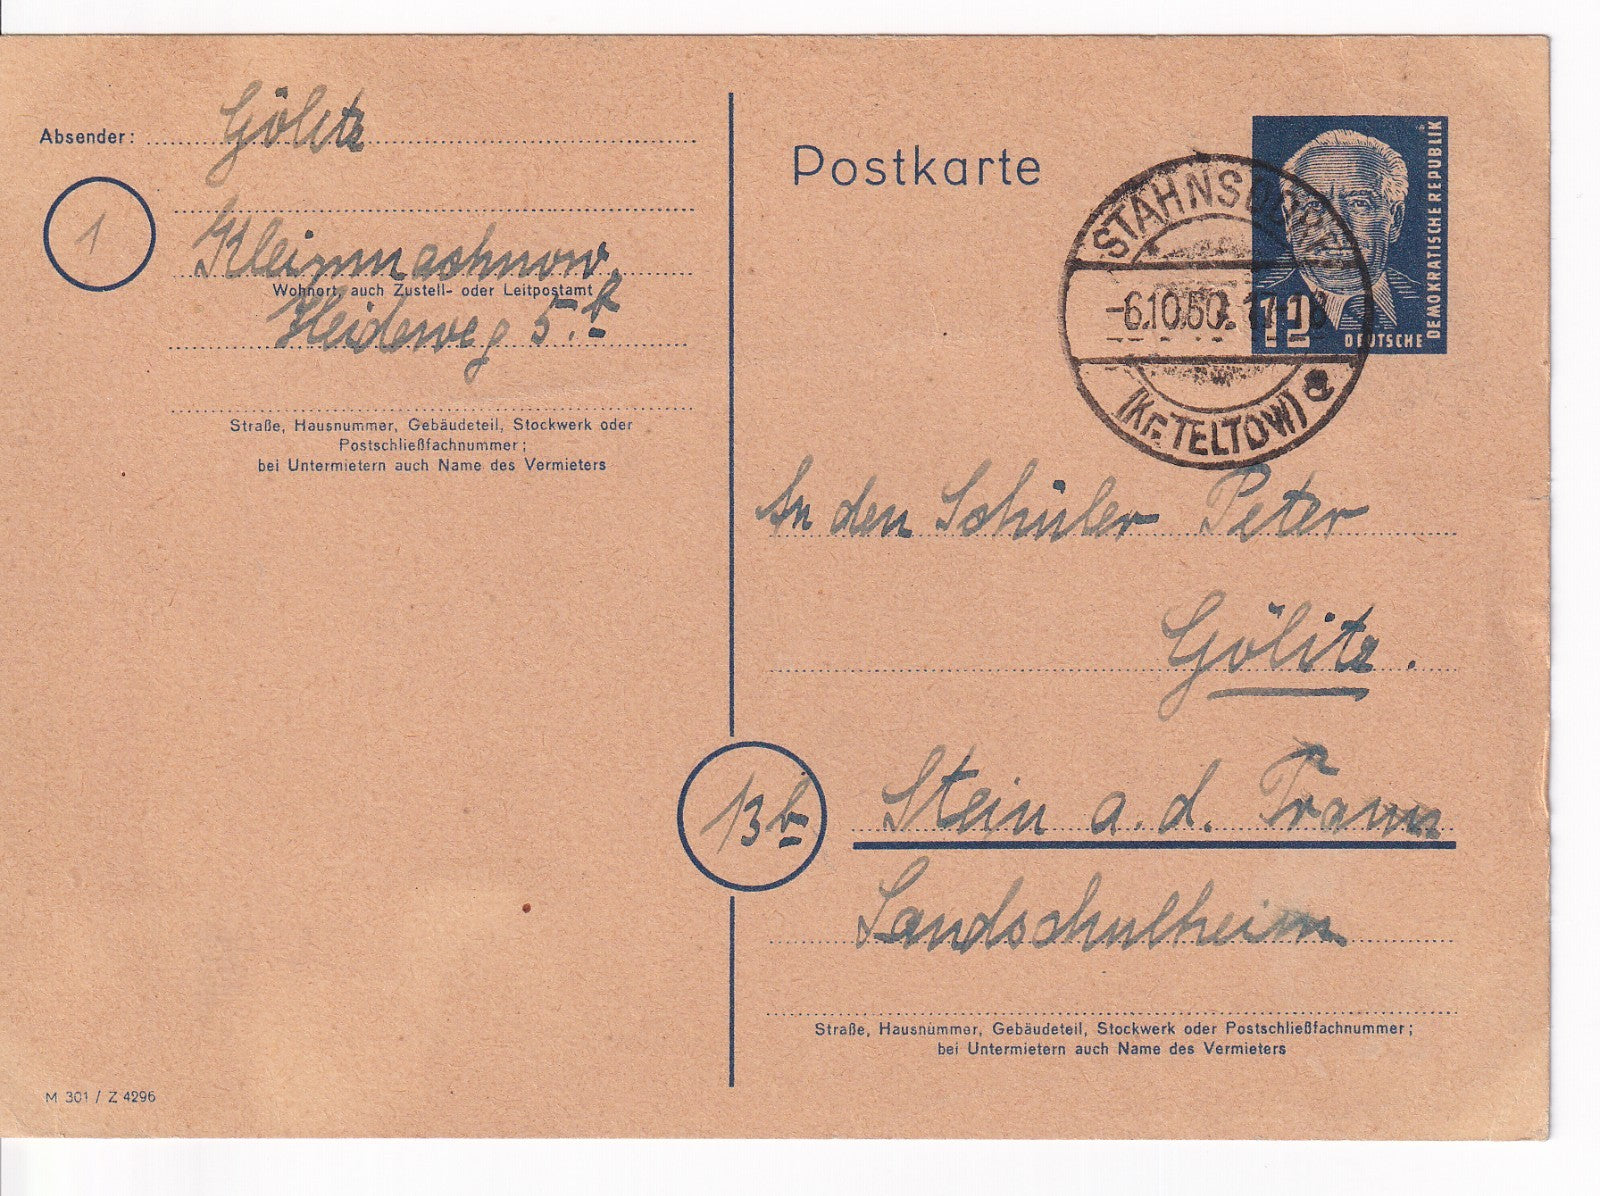 Absender: Gölitz
1
Kleinmachnow,
Wohnort, auch Zustell- oder Leitpostamt
Heideweg 5.b
Straße, Hausnummer, Gebäudeteil, Stockwerk oder
Postschließfachnummer;
bei Untermietern auch Name des Vermieters
M 301 / Z 4296
Postkarte
DEUTSCHE
DEMOKRATISCHE REPUBLIK
12
STAHNSDORF
-6.10.50.17-18
(Kr. TELTOW) a
An den Schüler Peter
Gölitz.
13b
Stein a.d. Traun
Landschulheim
Straße, Hausnummer, Gebäudeteil, Stockwerk oder Postschließfachnummer;
bei Untermietern auch Name des Vermieters